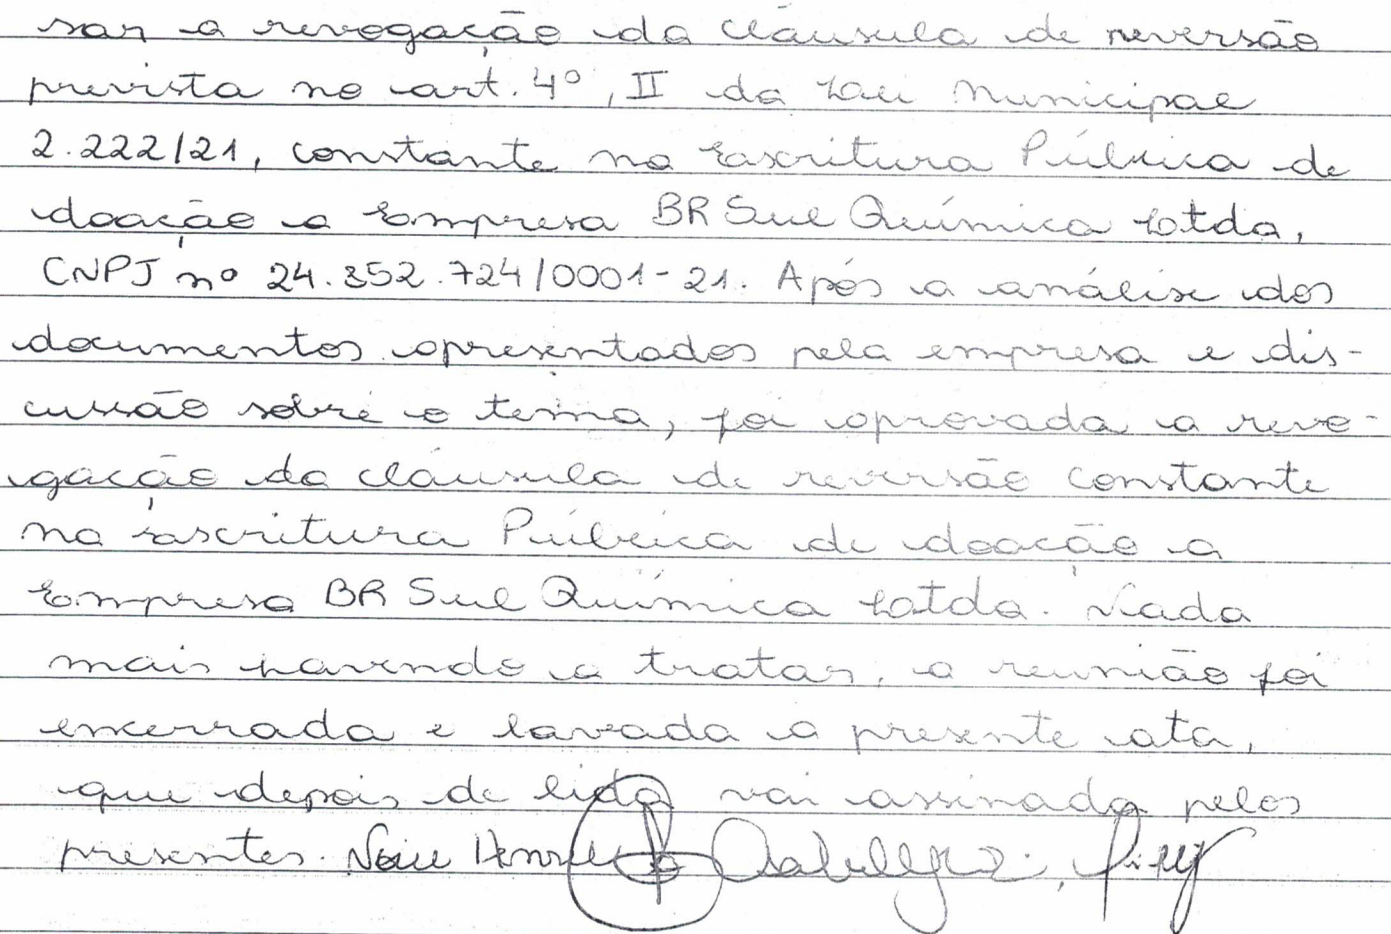 sar a revogação da cláusula de reversão
prevista no art. 4º, II da Lei Municipal
2.222/21, constante na Escritura Pública de
doação a Empresa BR Sul Química Ltda,
CNPJ nº 24.352.724/0001-21. Após a análise dos
documentos apresentados pela empresa e dis-
cussão sobre o tema, foi aprovada a revo-
gação da cláusula de reversão constante
na Escritura Pública de doação a
Empresa BR Sul Química Ltda. Nada
mais havendo a tratar, a reunião foi
encerrada e lavrada a presente ata,
que depois de lida vai assinada pelos
presentes.